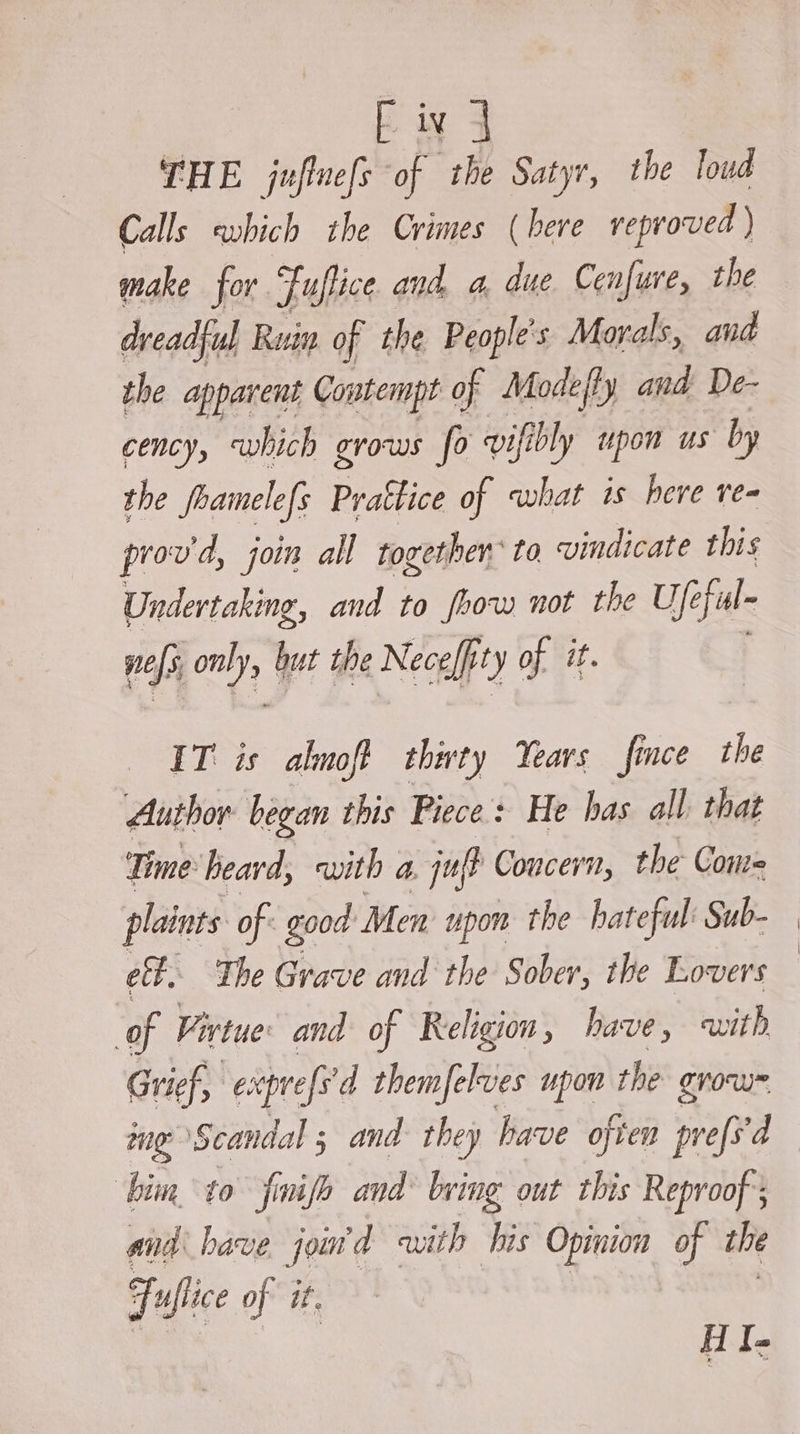 [ iv ]
THE juſtneſs of the Satyr, the loud
Calls which the Crimes (here reproved)
make for Juſtice and a due Cenſure, the
dreadful Ruin of the People's Morals, and
the apparent Contempt of Modeſty and De-
cency, which grows ſo viſibly upon us by
the ſhameleſs Practice of what is here re-
prov'd, join all together to vindicate this
Undertaking, and to ſhow not the Uſeful-
neſs only, but the Neceſſity of it.
IT is almoſt thirty Years ſince the
Author began this Piece: He has all that
Time heard, with a juſt Concern, the Com-
plaints of good Men upon the hateful Sub-
ect. The Grave and the Sober, the Lovers
of Virtue and of Religion, have, with
Grief, expreſs'd themſelves upon the grow-
ing Scandal; and they have often preſs'd
him to finiſh and bring out this Reproof;
and have join'd with his Opinion of the
Juſtice of it.
HI-